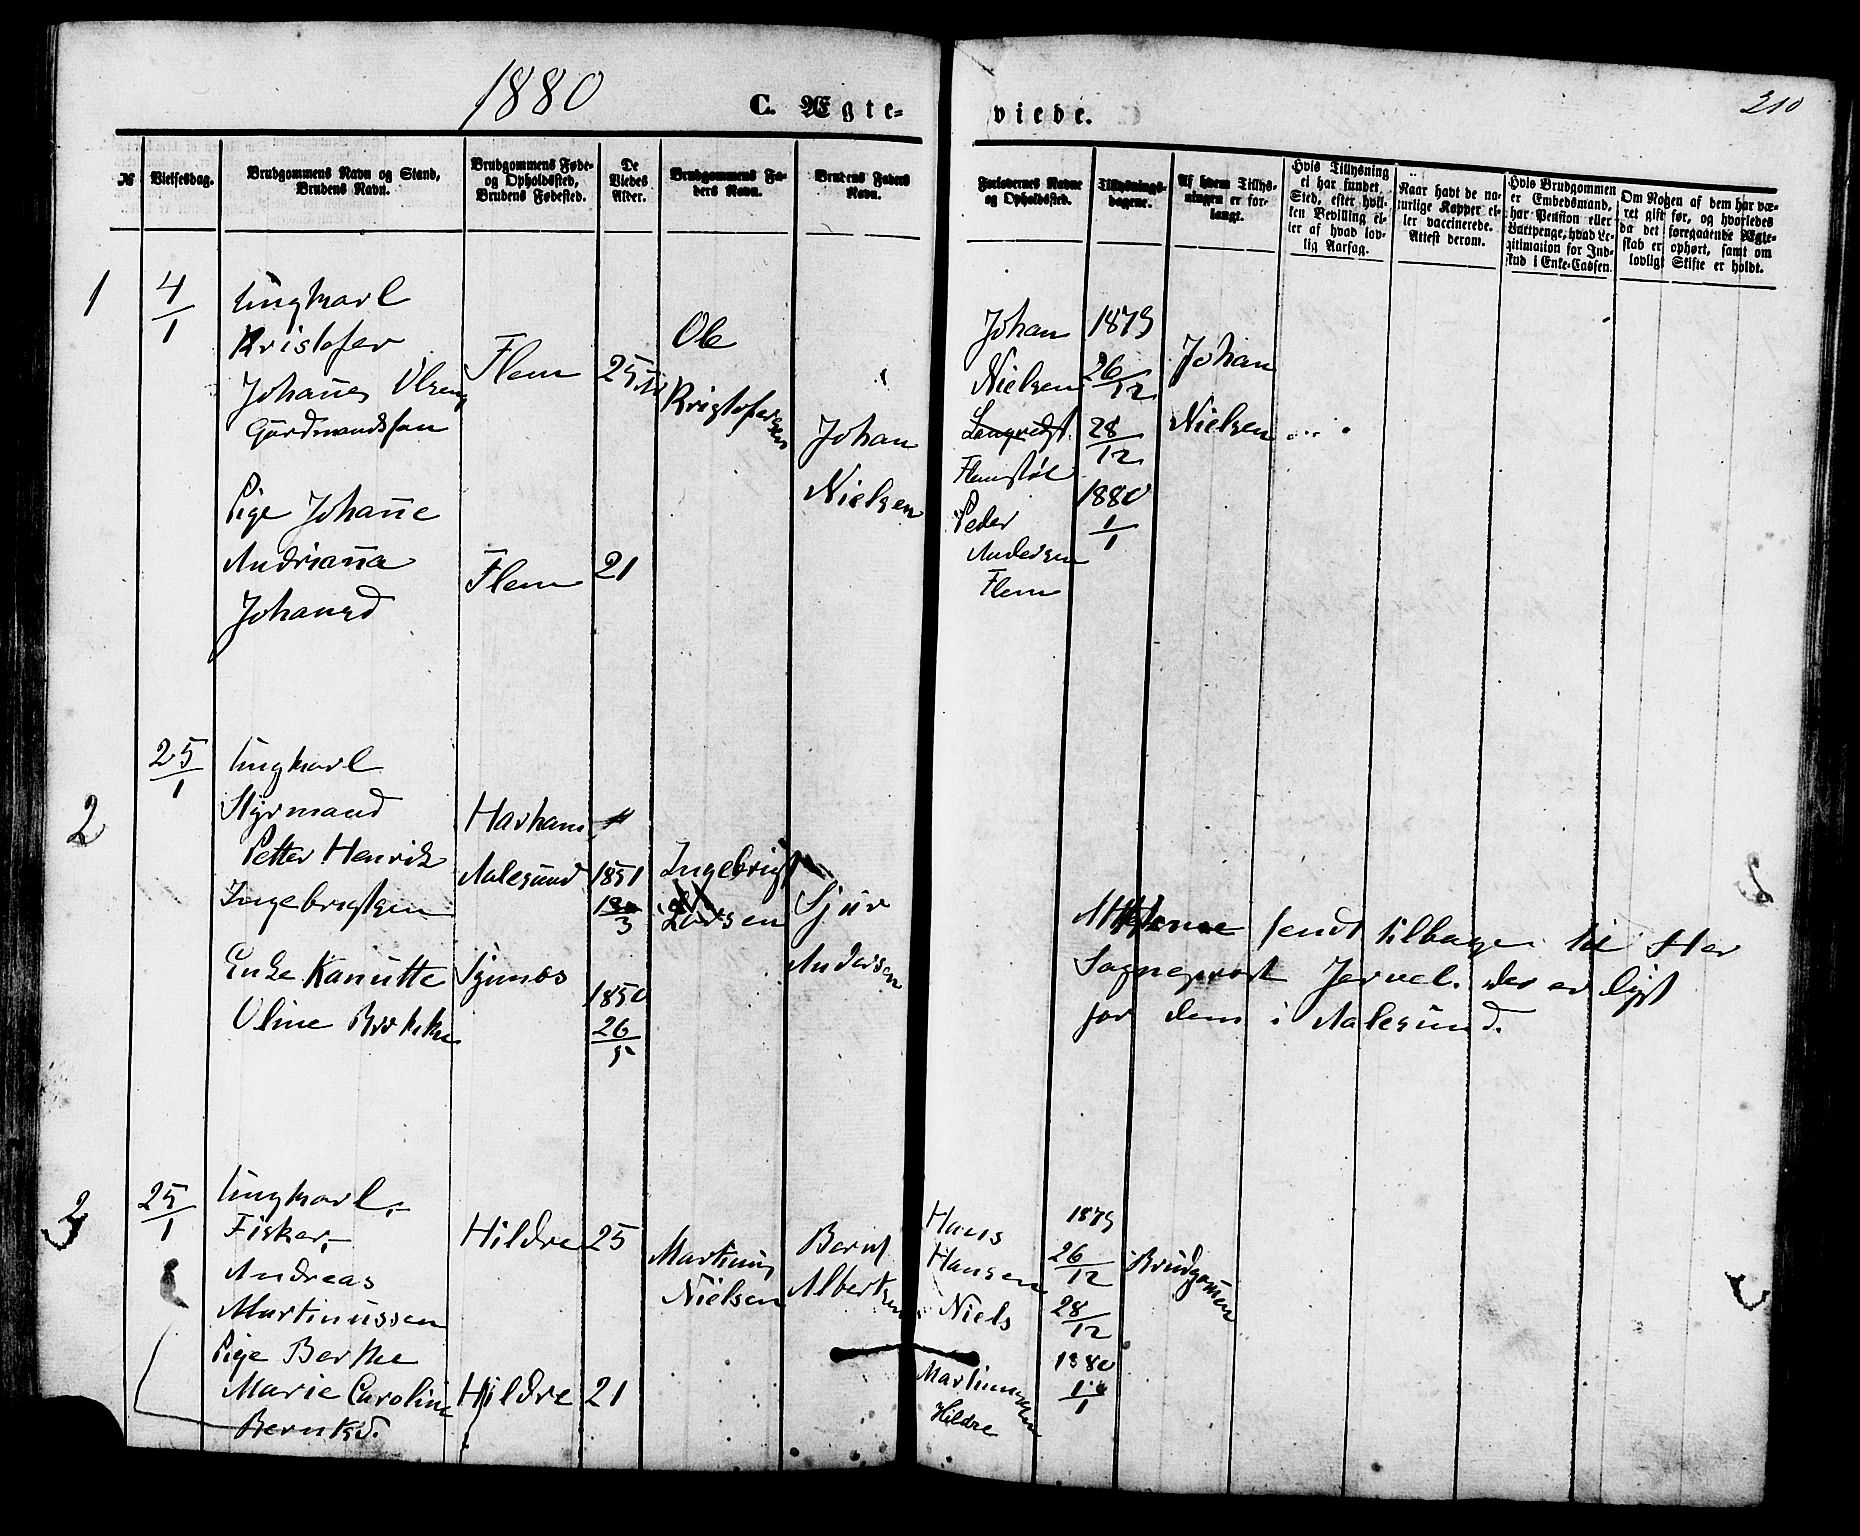 1880
C. Ægte-
viede.
210
№
Vielsesdag.
Brudgommens Navn og Stand,
Brudens Navn.
Brudgommens Føde-
og Opholdssted,
Brudens Fødested.
De
Viedes
Alder.
Brudgommens Fa-
ders Navn.
Brudens Faders
Navn.
Forlovernes Navne
og Opholdssted.
Tillysnings-
dagene.
Af hvem Tillys-
ningen er for-
langt.
Hvis Tillysning
ei har fundet
Sted, efter hvil-
ken Bevilling el-
ler af hvad lov-
lig Aarsag.
Naar havt de na-
turlige Kopper el-
ler vaccinerede.
Attest derom.
Hvis Brudgommen
er Embedsmand,
har Pension eller
Vartpenge, hvad Le-
gitimation for Ind-
skud i Enke-Cassen.
Om Nogen af dem har væ-
ret gift før, og hvorledes
da det foregaaende Ægte-
skab er ophørt, samt om
lovligt Skifte er holdt.
1
4/1
Ungkarl
Kristofer
Johanes Olsen
Gardmandssøn
Flem
25
Ole
Kristofersen
Johan
Nielsen
Flemstøl
Peder
Andersen
Flem
1879
26/12
28/12
1880
1/1
Johan
Nielsen
Pige Johanne
Andrianna
Johansd
Flem
21
Johan
Nielsen
2
25/1
Ungkarl
Styrmand
Petter Henrik
Ingebrigtsen
Harham
Aalesund
1851
3
Ingebrigt
Larsen
Sjur
Andersen
Enke Kanutte
Oline Brokke
1850
26/5
Attesterne sendt tilbage til Her
Sogneprost Jervel. der er lyst
for dem i Aalesund.
3
25/1
Ungkarl,
Fisker,
Andreas
Martinussen
Hildre
25
Martinus
Nielsen
Bernt
Albertsen
Hans
Hansen
Niels
Martinussen
Hildre
1879
26/12
28/12
1880
1/1
Brudgommen
Pige Berthe
Marie Caroline
Berntsd.
Hildre
21